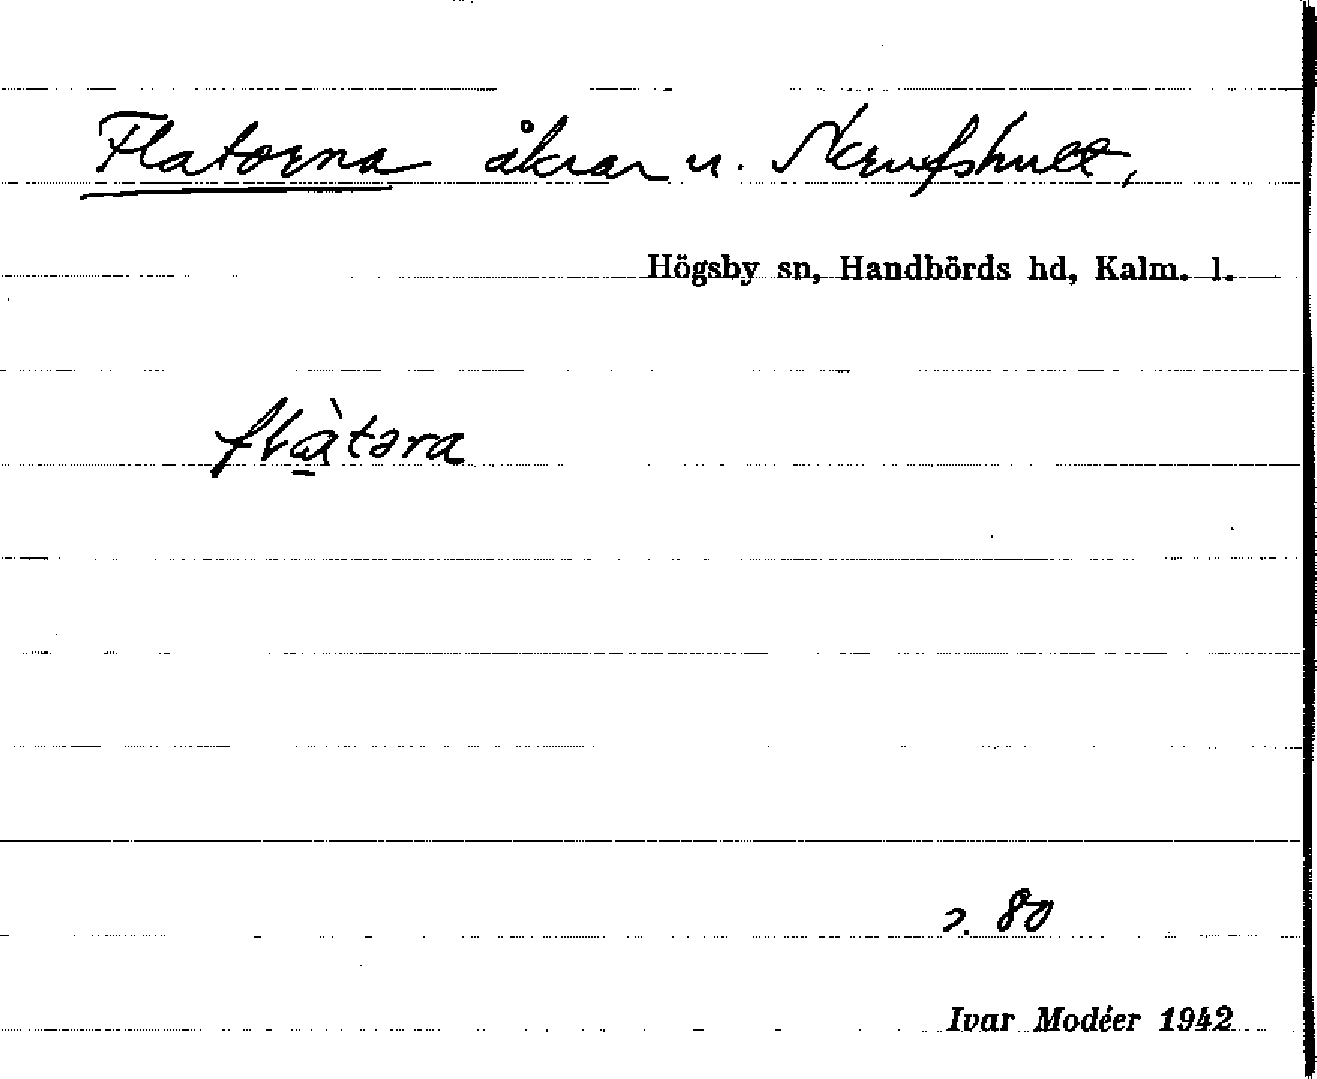 Flatorna åkrar u.
Högsby sn, Handbörds hd, Kalm. l.
s. 80
Ivar Modéer 1942